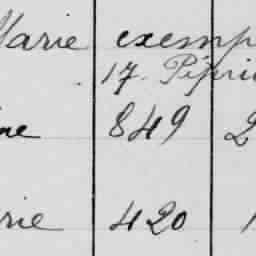 Marie exemp
17. Pipri
ne 849 2
rie 420 1